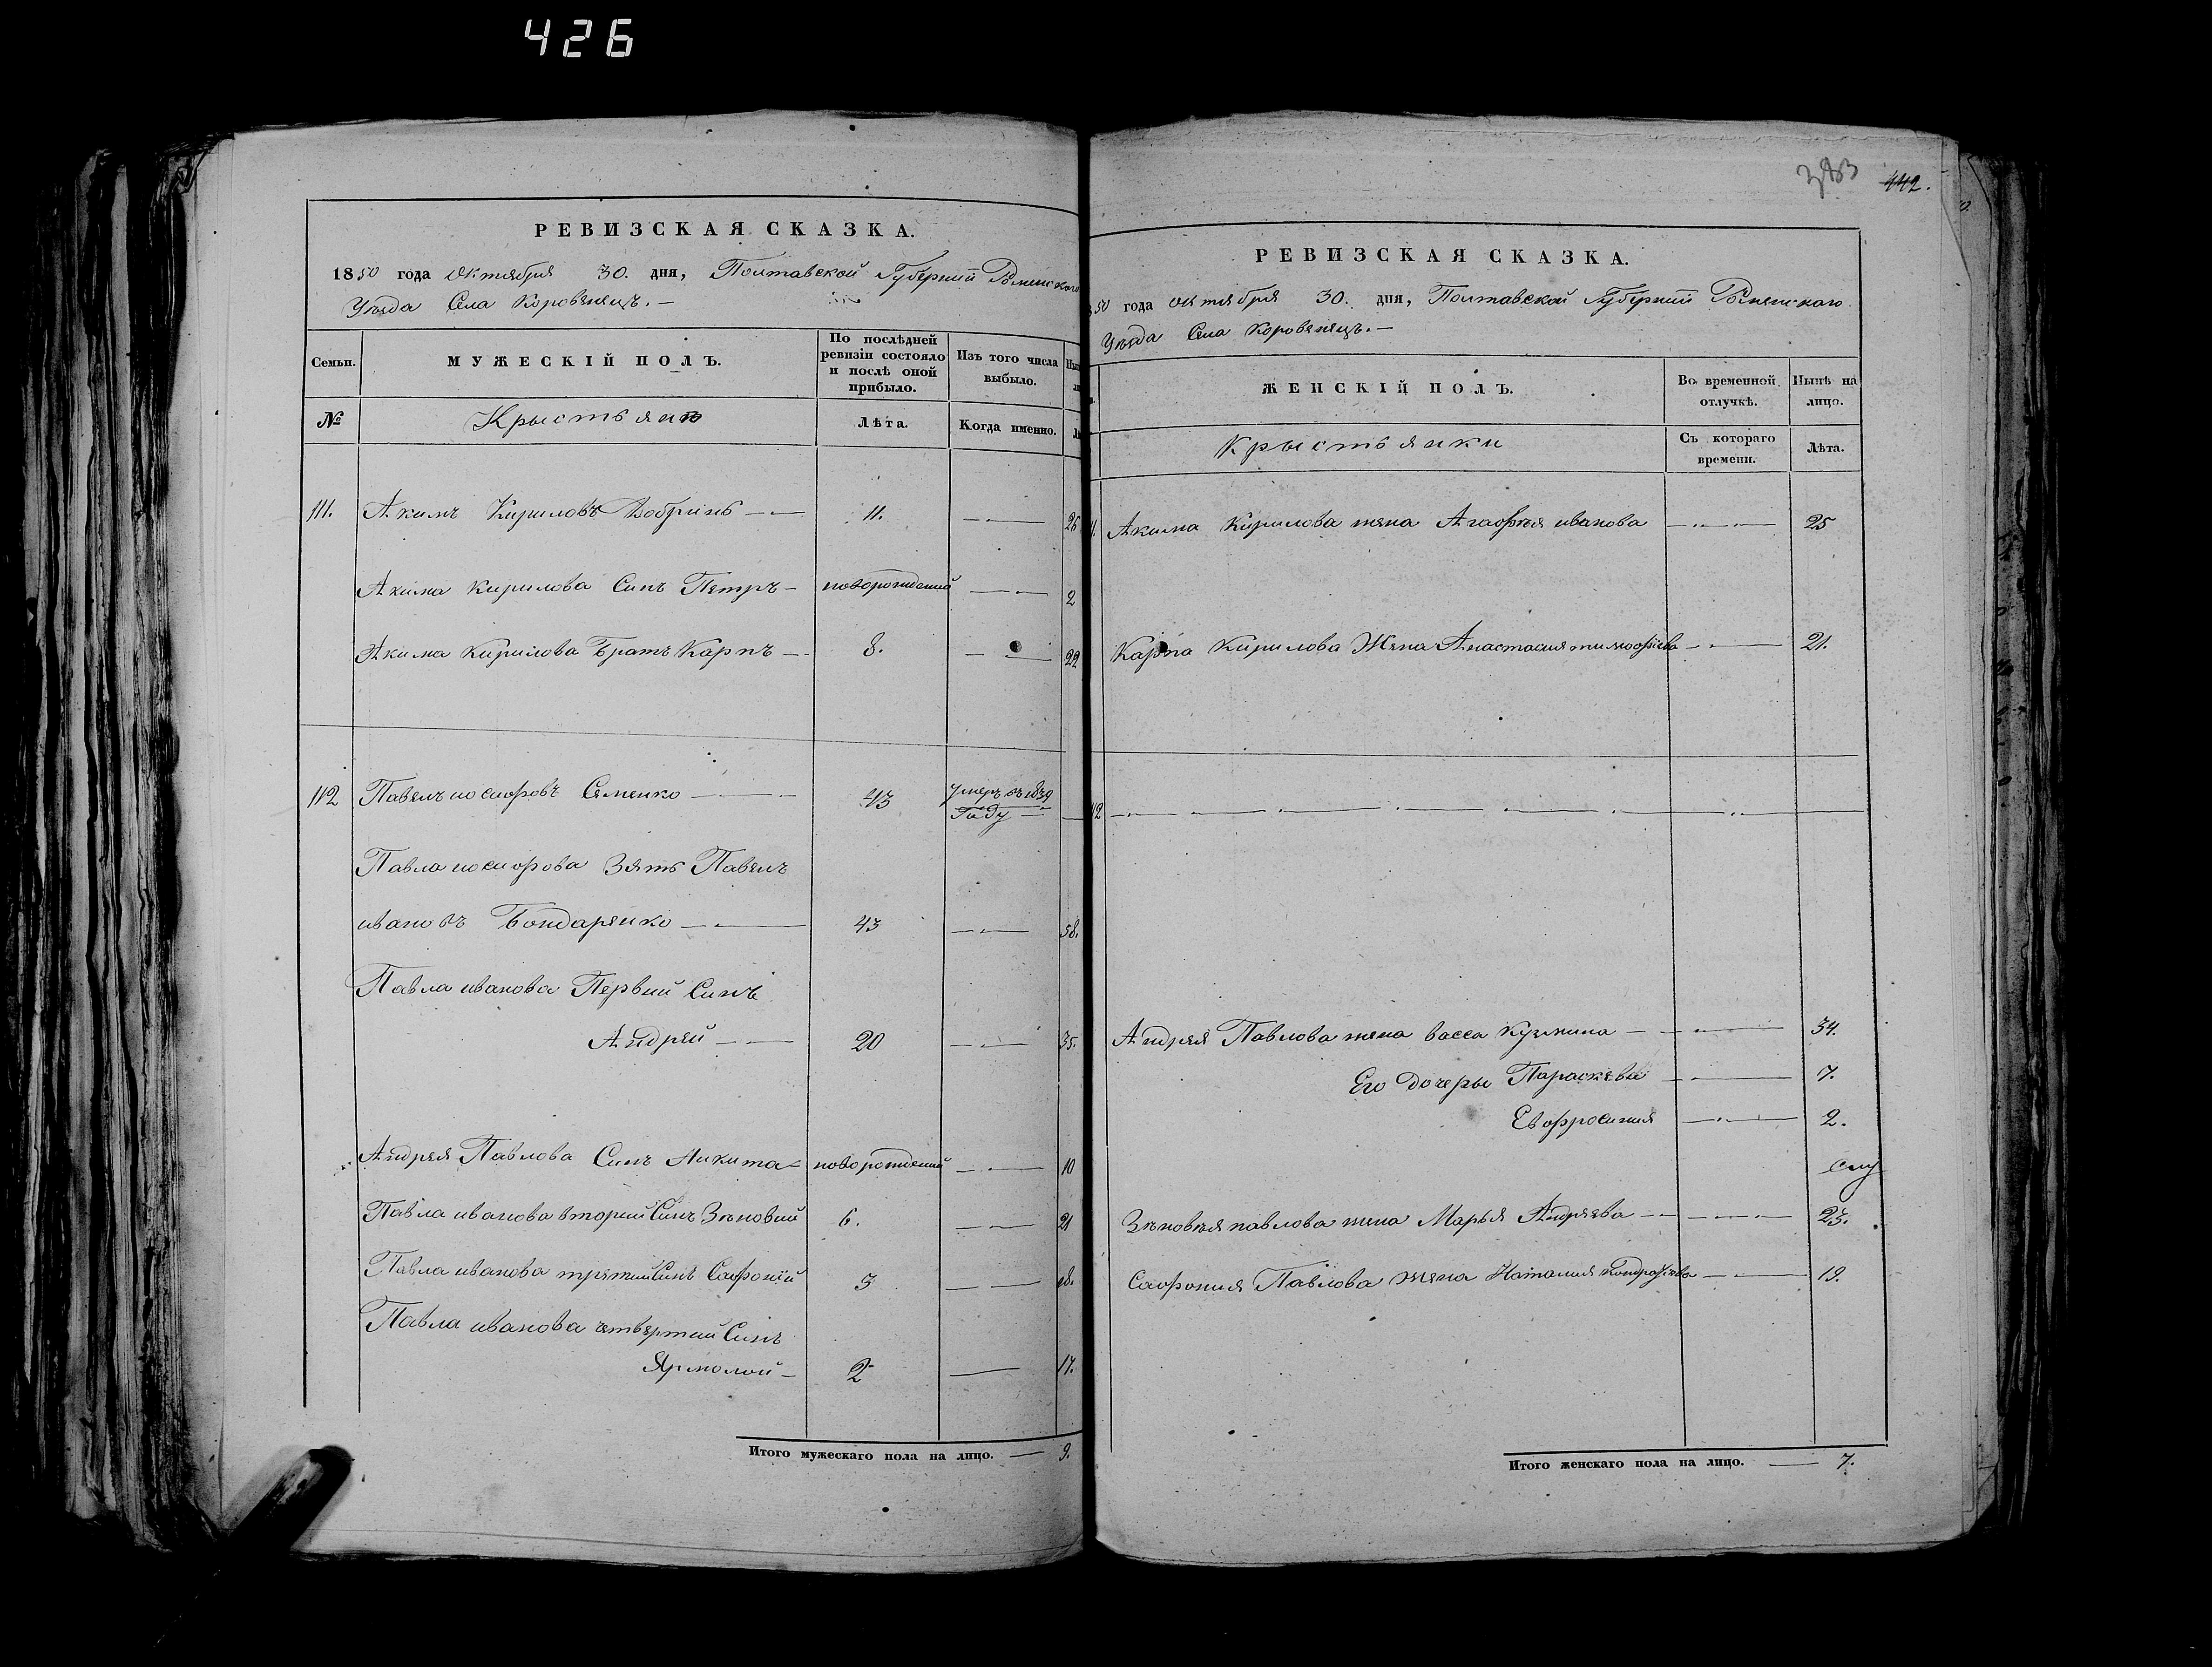 426
РЕВИЗСКАЯ СКАЗКА.
1850 года Октября 30. дня, Полтавской Губернии Роменского
Уезда Села Коровянецъ. —
Семьи.
МУЖЕСКІЙ ПОЛЪ.
По послѣдней ревизіи состояло и послѣ оной прибыло.
Изъ того числа выбыло.
№
Крыстьянъ
Лѣта.
Когда именно.
111. Акимъ Кириловъ 11. 26
Акима Кирилова Синъ Петръ — новорождений 2
Акима Кирилова Братъ Карпъ — 8. 22
112 Павелъ иосифовъ Семенко 43 Умеръ въ 1839
Году
Павла иосифова Зять Павелъ
ивановъ Бондаренко 43 58.
Павла иванова Первий Синъ
Андрей 20 35.
Андрея Павлова Синъ Никита — новорожденний 10
Павла иванова вторий Синъ Зѣновий 6. 21
Павла иванова третий Синъ Сафоній 3 18.
Павла иванова четвертий Синъ
Ярмолой — 2 17.
Итого мужескаго пола на лицо. — 9.
383 442.
РЕВИЗСКАЯ СКАЗКА.
50 года октября 30. дня, Полтавской Губернии Роменскаго
Уезда Села Коровянецъ. —
ЖЕНСКІЙ ПОЛЪ.
Во временной отлучкѣ.
Нынѣ на лицо.
Крыстьянки
Съ котораго времени.
Лѣта.
Акима Кирилова жена Агафѣя иванова 25
Карпа Кирилова Жена Анастасия тимофіева 21.
12
Андрея Павлова жена васса Кузмина 34.
Его Дочеры Параскева 7.
Евфросиния 2.
Зѣновѣя павлова жена Марья Андреева 23.
Сафрония Павлова жена Наталия Кондратіева 19.
Итого женскаго пола на лицо. — 7.